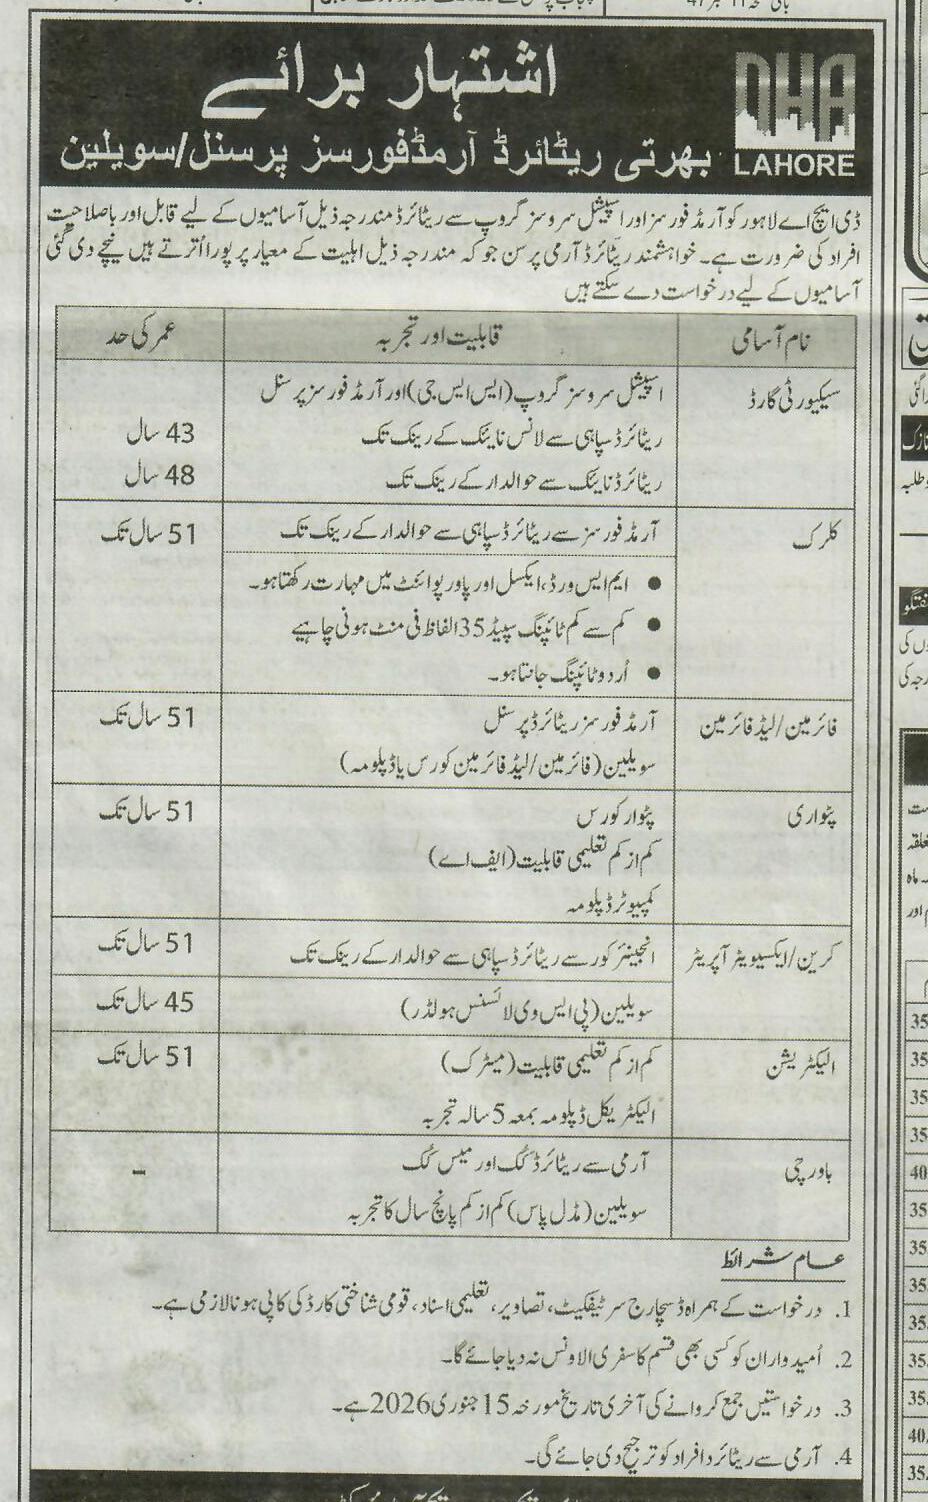 اشتہار برائے
بھرتی ریٹائرڈ آرمڈفورسز پرسنل/سویلین
DHA
LAHORE
ڈی ایچ اے لاہور کو آرمڈ فورسز اور اسپیشل سروسز گروپ سے ریٹائرڈ مندرجہ ذیل آسامیوں کے لیے قابل اور باصلاحیت
افراد کی ضرورت ہے۔ خواہشمند ریٹائرڈ آرمی پرسن جو کہ مندرجہ ذیل اہلیت کے معیار پر پورا اُترتے ہیں نیچے دی گئی
آسامیوں کے لیے درخواست دے سکتے ہیں
نام آسامی قابلیت اور تجربہ عمر کی حد
سیکیورٹی گارڈ اسپیشل سروسز گروپ (ایس ایس جی) اور آرمڈ فورسز پرسنل
ریٹائرڈ سپاہی سے لانس نائیک کے رینک تک 43 سال
ریٹائرڈ نائیک سے حوالدار کے رینک تک 48 سال
کلرک آرمڈ فورسز سے ریٹائرڈ سپاہی سے حوالدار کے رینک تک 51 سال تک
● ایم ایس ورڈ، ایکسل اور پاور پوائنٹ میں مہارت رکھتا ہو۔
● کم سے کم ٹائپنگ سپیڈ 35 الفاظ فی منٹ ہونی چاہیے
● اُردو ٹائپنگ جانتا ہو۔
فائر مین/لیڈ فائر مین آرمڈ فورسز ریٹائرڈ پرسنل 51 سال تک
سویلین (فائر مین/لیڈ فائر مین کورس یا ڈپلومہ)
پٹواری پٹوار کورس 51 سال تک
کم از کم تعلیمی قابلیت (ایف اے)
کمپیوٹر ڈپلومہ
کرین/ایکسیویٹر آپریٹر انجینئر کور سے ریٹائرڈ سپاہی سے حوالدار کے رینک تک 51 سال تک
سویلین (پی ایس وی لائسنس ہولڈر) 45 سال تک
الیکٹریشن کم از کم تعلیمی قابلیت (میٹرک) 51 سال تک
الیکٹریکل ڈپلومہ بمعہ 5 سالہ تجربہ
باورچی آرمی سے ریٹائرڈ کُک اور میس کُک –
سویلین (مڈل پاس) کم از کم پانچ سال کا تجربہ
عام شرائط
1. درخواست کے ہمراہ ڈسچارج سرٹیفکیٹ، تصاویر، تعلیمی اسناد، قومی شناختی کارڈ کی کاپی ہونا لازمی ہے۔
2. اُمیدواران کو کسی بھی قسم کا سفری الاونس نہ دیا جائے گا۔
3. درخواستیں جمع کروانے کی آخری تاریخ مورخہ 15 جنوری 2026 ہے۔
4. آرمی سے ریٹائرڈ افراد کو ترجیح دی جائے گی۔